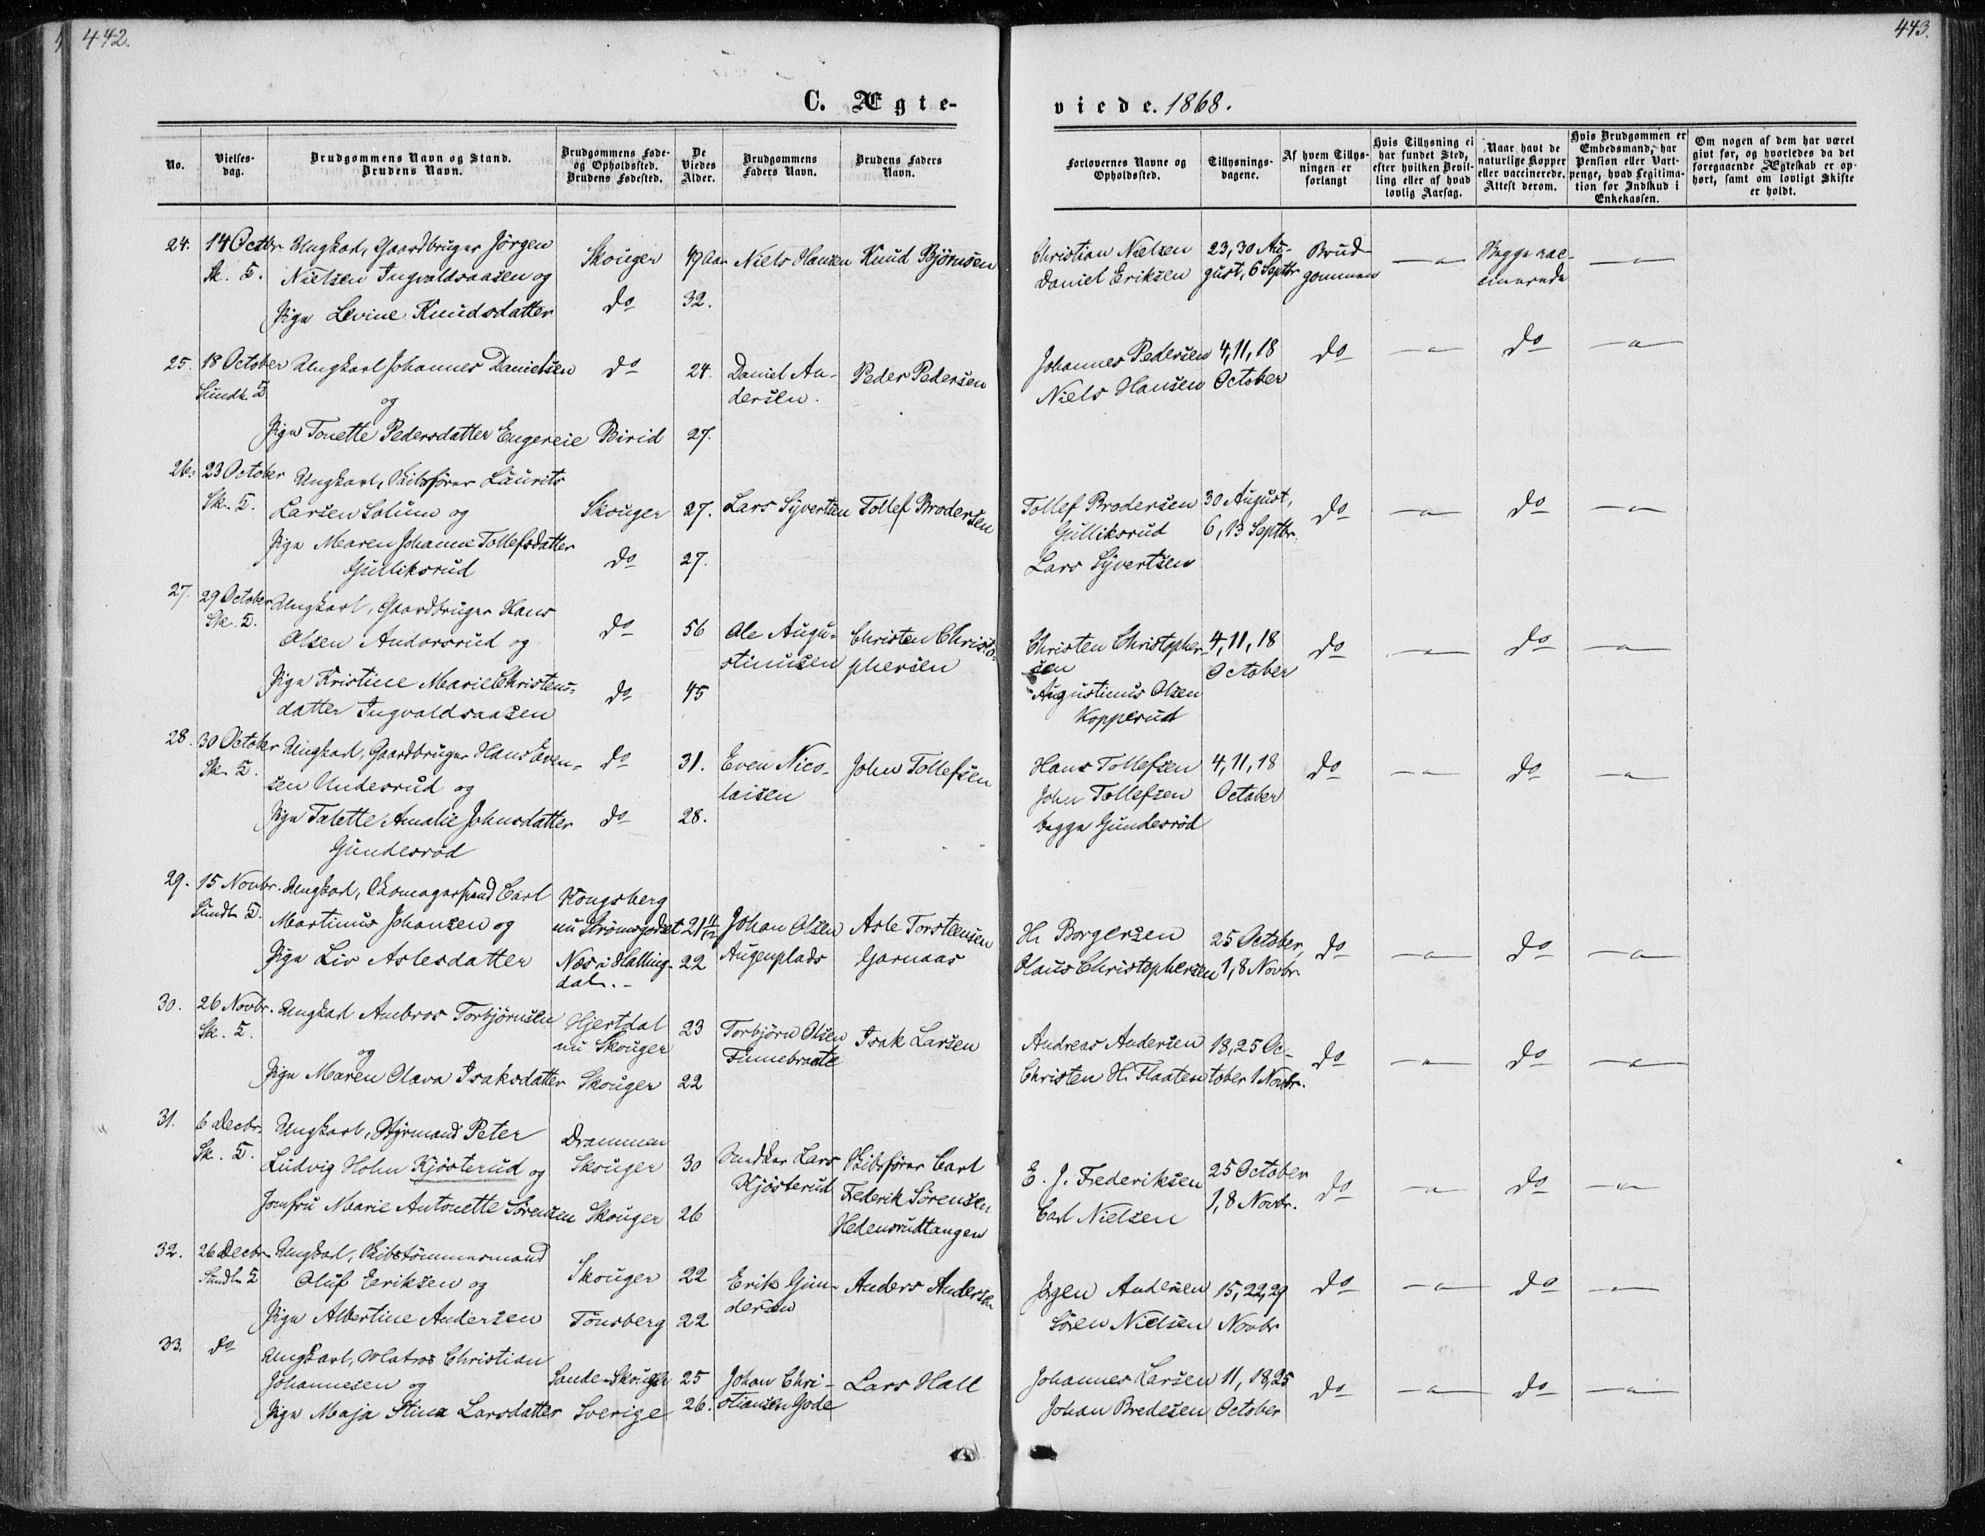 442.
443.
C. Ægte-
viede. 1868.
No.
Vielses-
dag.
Brudgommens Navn og Stand.
Brudens Navn.
Brudgommens Føde-
og Opholdssted.
Brudens Fødested.
De
Viedes
Alder.
Brudgommens
Faders Navn.
Brudens Faders
Navn.
Forlovernes Navne og
Opholdssted.
Tillysnings-
dagene.
Af hvem Tillys-
ningen er
forlangt
Hvis Tillysning ei
har fundet Sted,
efter hvilken Bevil-
ling eller af hvad
lovlig Aarsag.
Naar havt de
naturlige Kopper
eller vaccinerede.
Attest derom.
Hvis Brudgommen er
Embedsmand, har
Pension eller Vart-
penge, hvad Legitima-
tion for Indskud i
Enkekassen.
Om nogen af dem har været
givt før, og hvorledes da det
foregaaende Ægteskab er op-
hørt, samt om lovligt Skifte
er holdt.
24.
14 Octbr
Sk. K.
Ungkarl, Gaardbruger Jörgen
Nielsen Ingvaldsaasen og
Pige Levine Knudsdatter
Skouger
do
49 Aar
32.
Niels Hansen
Knud Björnsen
Christian Nielsen
Daniel Eriksen
23, 30 Au-
gust, 6 Septbr
Brud-
gommen
—"—
Begge vac-
cinerede
—"—
25.
18 October
Sundh. K.
Ungkarl Johannes Danielsen
og
Pige Tonette Pedersdatter Engereie
do
Birid
24.
27.
Daniel An-
dersen.
Peder Pedersen
Johannes Pedersen
Niels Hansen
4, 11, 18
October
do
—"—
do
—"—
26.
23 October
Sk. K.
Ungkarl, Skibsfører Laurits
Larsen Solum og
Pige Maren Johanne Tollefsdatter
Gulliksrud
Skouger
do
27.
27.
Lars Syvertsen
Tollef Brodersen
Tollef Brodersen
Gulliksrud
Lars Syvertsen
30 August,
6, 13 Septbr.
do
—"—
do
—"—
27.
29 October
Sk. K.
Ungkarl, Gaardbruger Hans
Olsen Andorsrud og
Pige Kristine Marie Christens-
datter Ingvaldsaasen
do
do
56
45
Ole Augu-
stinusen
Christen Christo-
phersen
Christen Christopher-
sen
Augustinus Olsen
Kopperud
4, 11, 18
October
do
—"—
do
—"—
28.
30 October
Sk. K.
Ungkarl, Gaardbruger Hans Even-
sen Undesrud og
Pige Talette Amalie Johnsdatter
Gundesröd
do
do
31.
28.
Even Nico-
laisen
John Tollefsen
Hans Tollefsen
John Tollefsen
begge Gundesröd
4, 11, 18
October
do
—"—
do
—"—
29.
15 Novbr.
Sundh K.
Ungkarl, Skomagersvend Carl
Martinus Johansen og
Pige Liv Aslesdatter
Kongsberg
nu Strømsgodset
Næs i Halling-
dal.-
21 11/12
22
Johan Olsen
Augenplads
Asle Torsteensen
Garnaas
H. Borgersen
Olaus Christophersen
25 October
1, 8 Novbr.
do
—"—
do
—"—
30.
26 Novbr.
Sk. K.
Ungkarl Ambros Torbjörnsen
og
Pige Maren Olava Isaksdatter
Hjertdal
nu Skouger
Skouger
23
22
Torbjörn Olsen
Finnebraate
Isak Larsen
Andreas Andersen
Christen H. Flaaten
18, 25 Oc-
tober 1 Novbr.
do
—"—
do
—"—
31.
6 Decbr.
Sk. K.
Ungkarl, Styrmand Peter
Ludvig Holm Kjösterud og
Jomfru Marie Antonette Sörensen
Drammen
Skouger
Skouger
30
26
Snedker Lars
Kjösterud
Skibsfører Carl
Frederik Sörensen
Hedensrudtangen
E. J. Frederiksen
Carl Nielsen
25 October
1, 8 Novbr.
do
—"—
do
—"—
32.
26 Decbr
Sundh K
Ungkarl, Skibstømmermand
Oluf Eriksen og
Pige Albertine Andersen
Skouger
Tönsberg
22
22
Erik Gun-
dersen
Anders Andersen
Jörgen Andersen
Sören Nielsen
15, 22, 29
Novbr
do
—"—
do
—"—
33.
do
Ungkarl, Matros Christian
Johannesen og
Pige Maja Stina Larsdatter
Sande - Skouger
Sverige
25
26.
Johan Chri-
stiansen Gode
Lars Hall
Johannes Larsen
Johan Bredesen
11, 18, 25
October
do
—"—
do
—"—